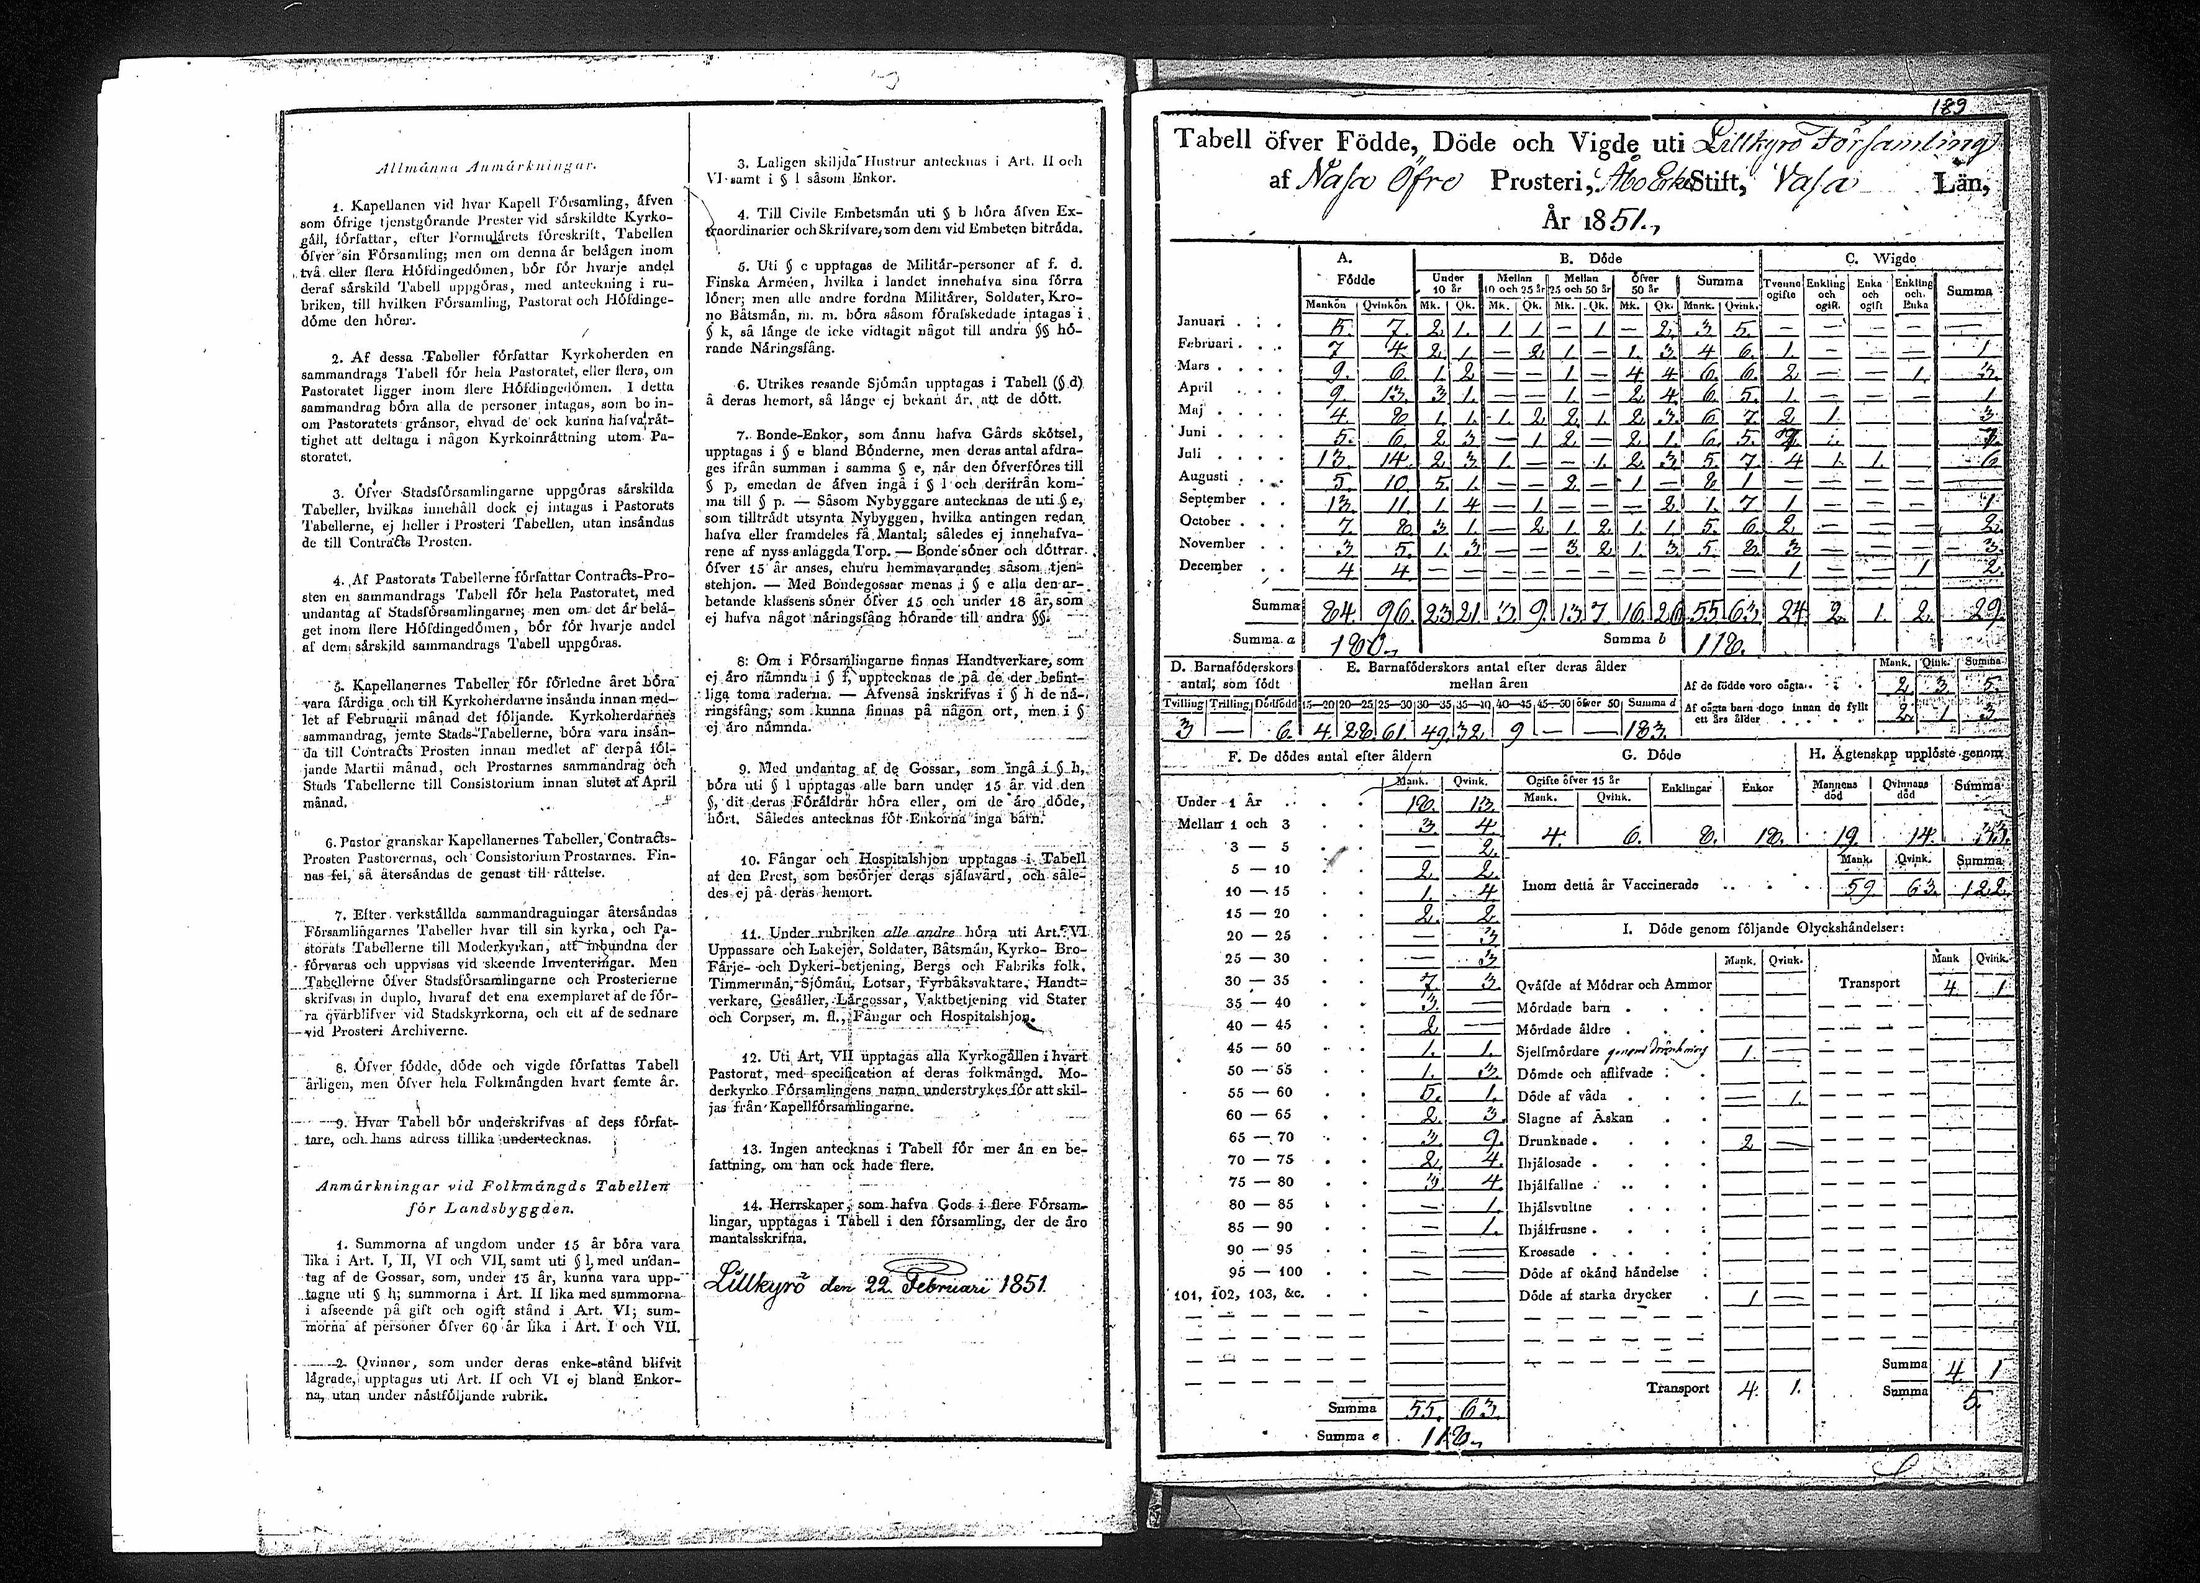 Allmánna Anmárkningar.
1. Kapellanen vid hvar Kapell Fórsamling, áfven
som ófrige tjenstgórande Prester vid sárskildte Kyrko-
gáll, fórfattar, efter Formulárets fóreskrift, Tabellen
ófver sin Fórsamling; men om denna ár belágen inom
två eller flera Hófdingedómen, bór fór hvarje andel
deraf sárskild Tabell uppgóras, med anteckning i ru-
briken, till hvilken Fórsamling, Pastorat och Hófdinge-
dóme den hórer.
2. Af dessa Tabeller fórfattar Kyrkoherden en
sammandrags Tabell fór hela Pastoratet, eller flera, om
Pastoratet ligger inom flere Hófdingedómen. I detta
sammandrag bóra alla de personer intagas, som bo in-
om Pastoratets gránsor, ehvad de ock kunna hafva rát-
tighet att deltaga i någon Kyrkoinráttning utom Pa-
storatet.
3. Ófver Stadsfórsamlingarne uppgóras sárskilda
Tabeller, hvilkas innehåll dock ej intagas i Pastorats
Tabellerne, ej heller i Prosteri Tabellen, utan insándas
de till Contracts Prosten.
4. Af Pastorats Tabellerne fórfattar Contracts-Pro-
sten en sammandrags Tabell fór hela Pastoratet, med
undantag af Stadsfórsamlingarne; men om det ár belá-
get inom flere Hófdingedómen, bór fór hvarje andel
af dem sárskild sammandrags Tabell uppgóras.
5. Kapellanernes Tabeller fór fórledne året bóra
vara fárdiga och till Kyrkoherdarne insánda innan med-
let af Februarii månad det fóljande. Kyrkoherdarnes
sammandrag, jemte Stads-Tabellerne, bóra vara insán-
da till Contracts Prosten innan medlet af derpå fól-
jande Martii månad, och Prostarnes sammandrag och
Stads Tabellerne till Consistorium innan slutet af April
månad.
6. Pastor granskar Kapellanernes Tabeller, Contracts-
Prosten Pastorernas, och Consistorium Prostarnes. Fin-
nas fel, så återsándas de genast till ráttelse.
7. Efter verkstállda sammandragningar återsándas
Fórsamlingarnes Tabeller hvar till sin kyrka, och Pa-
storats Tabellerne till Moderkyrkan, att inbundna der
fórvaras och uppvisas vid skeende Inventeringar. Men
Tabellerne ófver Stadsfórsamlingarne och Prosterierne
skrifvas in duplo, hvaraf det ena exemplaret af de fór-
ra qvarblifver vid Stadskyrkorna, och ett af de sednare
vid Prosteri Archiverne.
8. Ófver fódde, dóde och vigde fórfattas Tabell
årligen, men ófver hela Folkmángden hvart femte år.
9. Hvar Tabell bór underskrifvas af dess fórfat-
tare, och hans adress tillika undertecknas.
Anmárkningar vid Folkmángds Tabellen
fór Landsbyggden.
1. Summorna af ungdom under 15 år bóra vara
lika i Art. I, II, VI och VII, samt uti § l, med undan-
tag af de Gossar, som, under 15 år, kunna vara upp-
tagne uti § h; summorna i Art. II lika med summorna
i afseende på gift och ogift stånd i Art. VI; sum-
morna af personer ófver 60 år lika i Art. I och VII.
2. Qvinnor, som under deras enke-stånd blifvit
lágrade, upptagas uti Art. II och VI ej bland Enkor-
na, utan under nástfóljande rubrik.
3. Laligen skiljda Hustrur antecknas i Art. II och
VI samt i § l såsom Enkor.
4. Till Civile Embetsmán uti § b hóra áfven Ex-
traordinarier och Skrifvare, som dem vid Embeten bitráda.
5. Uti § c upptagas de Militár-personer af f. d.
Finska Arméen, hvilka i landet innehafva sina fórra
lóner; men alle andre fordna Militárer, Soldater, Kro-
no Båtsmán, m. m. bóra såsom fórafskedade intagas i
§ k, så lánge de icke vidtagit något till andra §§ hó-
rande Náringsfång.
6. Utrikes resande Sjómán upptagas i Tabell (§ d)
å deras hemort, så lánge ej bekant ár, att de dótt.
7. Bonde-Enkor, som ánnu hafva Gårds skótsel,
upptagas i § e bland Bónderne, men deras antal afdra-
ges ifrån summan i samma § e, nár den ófverfóres till
§ p, emedan de áfven ingå i § l och derifrån kom-
ma till § p. — Såsom Nybyggare antecknas de uti § e,
som tilltrádt utsynta Nybyggen, hvilka antingen redan
hafva eller framdeles få Mantal; således ej innehafva-
rene af nyss anlággda Torp. — Bonde sóner och dóttrar
ófver 15 år anses, churu hemmavarande, såsom tjen-
stehjon. — Med Bondegossar menas i § e alla den ar-
betande klassens sóner ófver 15 och under 18 år, som
ej hafva något náringsfång hórande till andra §§.
8. Om i Fórsamlingarne finnas Handtverkare, som
ej áro námnda i § f, upptecknas de på de der befint-
liga toma raderna. — Áfvenså inskrifvas i § h de ná-
ringsfång, som kunna finnas på någon ort, men i §
ej áro námnda.
9. Med undantag af de Gossar, som ingå i § h,
bóra uti § l upptagas alle barn under 15 år vid den
§, dit deras Fóráldrar hóra eller, om de áro dóde,
hórt. Således antecknas fór Enkorna inga barn.
10. Fångar och Hospitalshjon upptagas i Tabell
af den Prest, som besórjer deras sjálavård, och såle-
des ej på deras hemort.
11. Under rubriken alle andre hóra uti Art. VI
Uppassare och Lakejer, Soldater, Båtsmán, Kyrko- Bro-
Fárje- och Dykeri-betjening, Bergs och Fabriks folk,
Timmermán, Sjómán, Lotsar, Fyrbåksvaktare, Handt-
verkare, Gesáller, Lárgossar, Vaktbetjening vid Stater
och Corpser, m. fl., Fångar och Hospitalshjon.
12. Uti Art. VII upptagas alla Kyrkogállen i hvart
Pastorat, med specification af deras folkmángd. Mo-
derkyrko Fórsamlingens namn understrykes fór att skil-
jas från Kapellfórsamlingarne.
13. Ingen antecknas i Tabell fór mer án en be-
fattning, om han ock hade flere.
14. Herrskaper, som hafva Gods i flere Fórsam-
lingar, upptagas i Tabell i den fórsamling, der de áro
mantalsskrifna.
Lillkyrö den 22. Februari 1851.
189
Tabell öfver Födde, Döde och Vigde uti Lillkyrö Församling
af Wasa Öfre Prosteri, Åbo Erke Stift, Vasa Län,
År 1851.
A. B. Dóde C. Wigde
Fódde Under 10 år Mellan 10 och 25 år Mellan 25 och 50 år Öfver 50 år Summa Tvenne ogifte Enkling och ogift. Enka och ogift Enkling och Enka Summa
Mankön Qvinkön Mk. Qk. Mk. Qk. Mk. Qk. Mk. Qk. Mank. Qvink.
Januari 5. 7. 2. 1. 1. 1. — 1. — 2. 3. 5. — — — — —
Februari 7 4. 2. 1. — 2. 1. — 1. 3. 4 6. 1. — — — 1
Mars 9. 6. 1. 2. — — 1. — 4 4 6. 6. 2. — — 1. 3.
April 9. 13. 3. 1. — — 1. — 2 4. 6 5. 1. — — — 1
Maj 4 8 1. 1. 1. 2. 2. 1. 2. 3. 6 7. 2. 1. 3
Juni 5. 6. 2. 3. — 1. 2. — 2. 1. 6. 5.
Juli 13. 14. 2. 3. 1. — — 1. 2. 3. 5. 7. 4 1. 1. 6
Augusti 5. 10 5. 1. — — 2. — 1. — 8 1 — — — — —
September 13. 11. 1. 4 — 1. — — — 2. 1. 7. 1 — — — 1
October 7. 8. 3. 1. — 2. 1. 2. 1. 1. 5. 6. 2. — — — 2.
November 3 5. 1. 3. — — 3. 2. 1. 3. 5 8. 3 — — — 3.
December 4 4 — — — — — — — — — — 1 — — 1 2.
Summa 84. 96. 23. 21. 3. 9. 13. 7. 16. 26. 55. 63. 24. 2. 1. 2. 29.
Summa a 180. Summa b 118.
D. Barnafóderskors antal, som fódt E. Barnafóderskors antal efter deras ålder mellan åren Mank. Qink. Summa
Af de fódde voro oägta 2. 3. 5.
Tvilling Trilling Dódfódd 15—20 20—25 25—30 30—35 35—40 40—45 45—50 ófver 50 Summa d
Af oägta barn dogo innan de fyllt ett års ålder 2. 1. 3.
3 — 6. 4. 28. 61. 49. 32. 9 — — 183.
F. De dódes antal efter åldern G. Dóde H. Ägtenskap upplóste genom
Mank. Qvink. Ogifte ófver 15 år Enklingar Enkor Mannens dód Qvinnans dód Summa
Mank. Qvink.
4. 6. 8. 18. 19. 14. 33.
Mank. Qvink. Summa
Inom detta år Vaccinerade 59 63. 122.
Under 1 År 18. 13.
Mellan 1 och 3 3. 4.
3 — 5 — 2.
5 — 10 2. 2.
10 — 15 1. 4
15 — 20 2. 2.
20 — 25 — 3
25 — 30 — 3
30 — 35 7. 3
35 — 40 3. —
40 — 45 2 —
45 — 50 1. 1.
50 — 55 1. 3.
55 — 60 5. 1.
60 — 65 2. 3
65 — 70 3. 9.
70 — 75 2. 4.
75 — 80 3 4
80 — 85 — 1.
85 — 90 — 1.
90 — 95 — —
95 — 100 — —
101, 102, 103, &c.
Summa 55. 63.
Summa e 118.
I. Dóde genom fóljande Olyckshándelser:
Mank. Qvink. Mank Qvink.
Qváfde af Módrar och Ammor Transport 4. 1
Mórdade barn
Mórdade áldre
Sjelfmórdare genom dränkning 1. —
Dómde och aflifvade
Dóde af våda — 1.
Slagne af Åskan
Drunknade 2 —
Ihjálosade
Ihjálfallne
Ihjálsvultne
Ihjálfrusne
Krossade
Dóde af okánd hándelse
Dóde af starka drycker 1 —
Summa 4 1
Transport 4. 1. Summa 5.